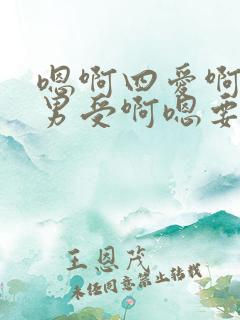 嗯啊四爱啊
男受啊嗯要
王恩茂
未经同意禁止转载